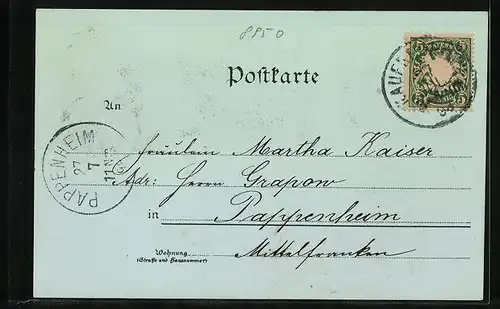 8850
Postkarte
An
Fräulein Martha Kaiser
Adr: Herrn Grapow
in Pappenheim
Wohnung
(Straße und Hausnummer)
Mittelfranken
PAPPENHEIM
27
7
BAYERN
5 5